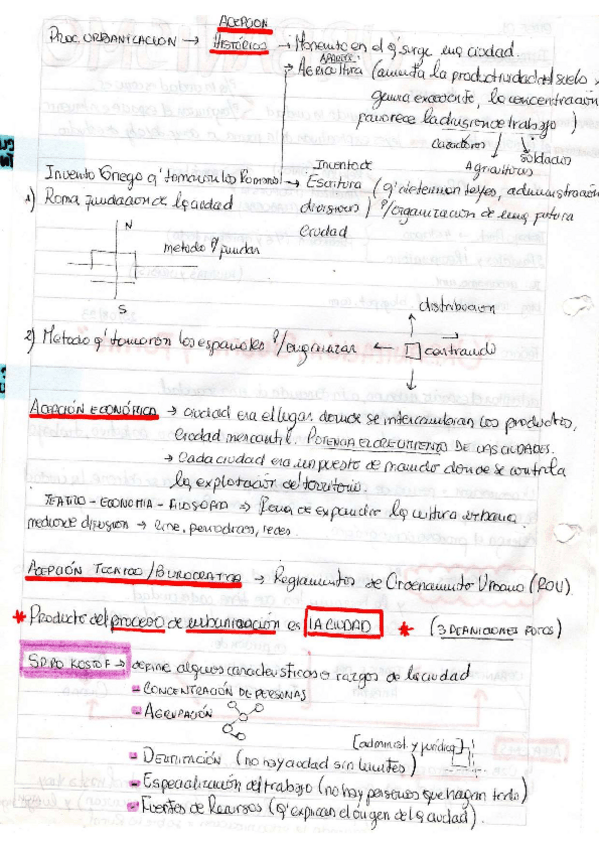 ACEPCION
PROC. URBANIZACION → HISTÓRICO → Momento en el q' surge una ciudad.
APARECE
→ AGRICULTURA (aumenta la productividad del suelo,
genera excedente, la concentración
favorece la division de trabajo)
Cazadores
Agricultores
Soldados
Invento de
Invento Griego q' tomaron los Romanos → Escritura (q' determinan leyes, administración
1) Roma fundacion de la ciudad
divisiones) p/ organización de una futura
ciudad
N
metodo p/ fundar
S
distribucion
2) Metodo q' tomaron los españoles p/ organizar ← centrando
ACEPCIÓN ECONÓMICA → ciudad era el lugar donde se intercambiaran los productos,
ciudad mercantil. POTENCIA EL CRECIMIENTO DE LAS CIUDADES.
→ Cada ciudad era un puesto de mando donde se controla
la explotación del territorio.
TEATRO - ECONOMIA - FILOSOFIA → forma de expandir la cultura urbana.
medios de difusion → cine, periodicos, redes.
ACEPCIÓN TECNICO/BUROCRATICA → Reglamentos de Ordenamiento Urbano (ROU)
* Producto del proceso de urbanización es LA CIUDAD * (3 DEFINICIONES FOTOS)
SPIRO KOSTOF → define algunas caracteristicas o rasgos de la ciudad
- CONCENTRACIÓN DE PERSONAS
- AGRUPACIÓN
[administ. y juridica]
- DELIMITACIÓN (no hay ciudad sin limites)
- Especialización del trabajo (no hay personas que hagan todo)
- Fuentes de Recursos (q' explican el origen de la ciudad).